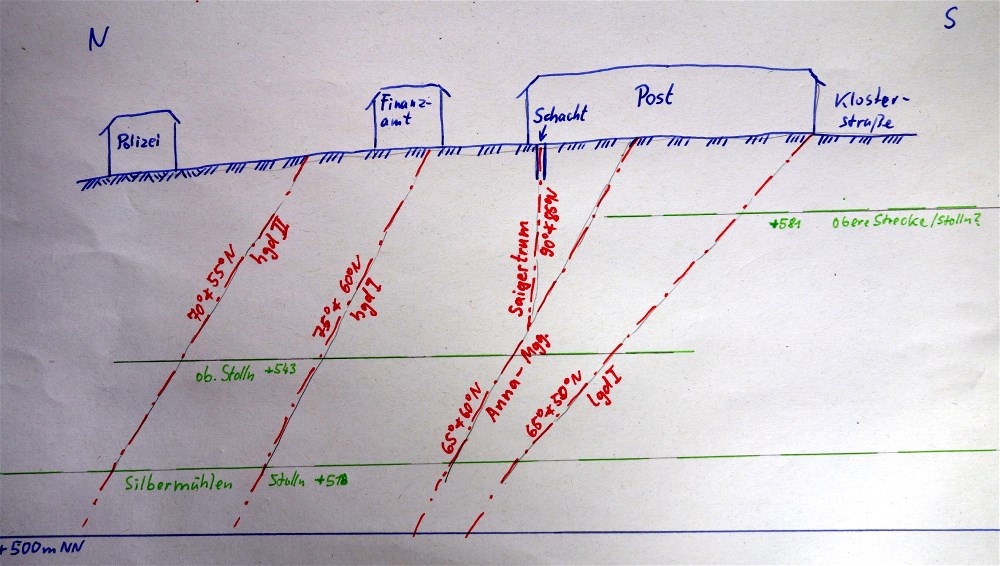 N
S
Polizei
Finanz-
amt
Schacht
Post
Kloster-
straße
70°*55°N
hgd II
75°*60°N
hgd I
Saigertrum
90°*85°N
+581 obere Strecke/Stolln?
ob. Stolln +543
65°*60°N
Anna-Mgg.
65°*50°N
lgd I
Silbermühlen Stolln +518
+500mNN